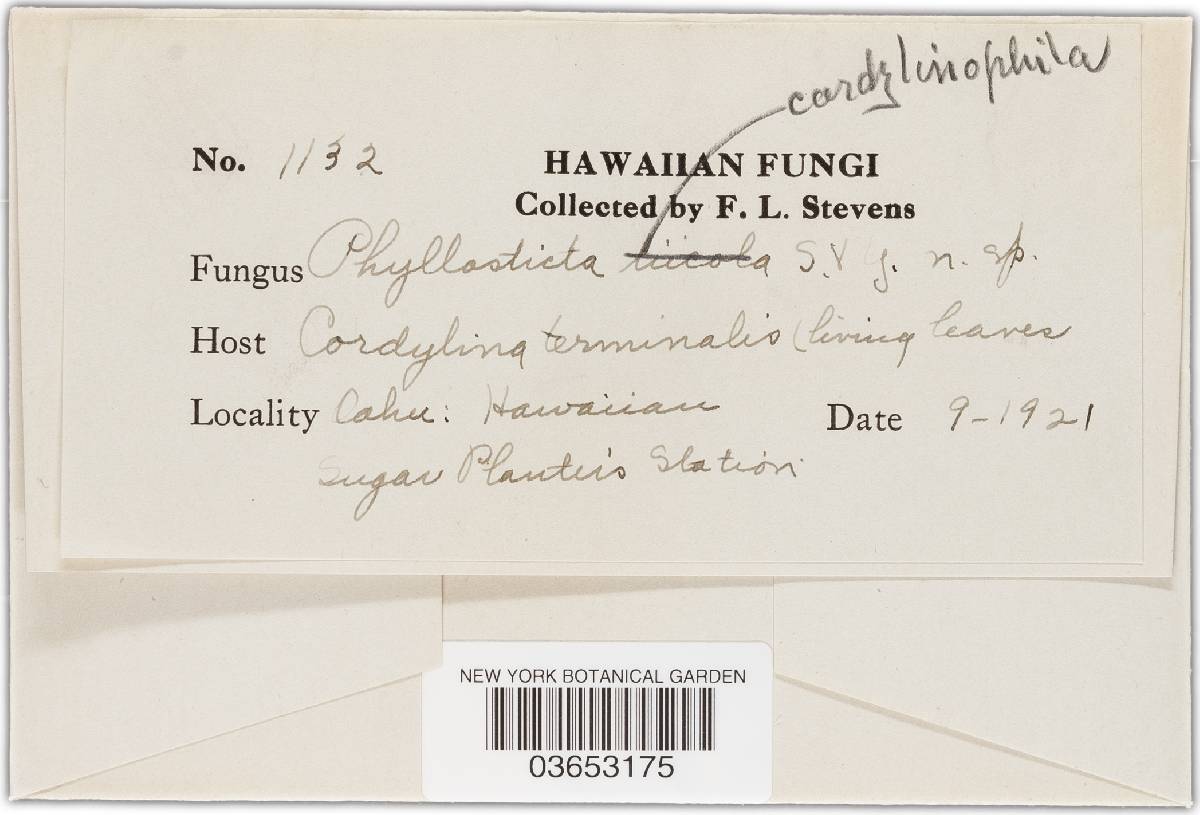 cordylinophila
No. 1132 HAWAIIAN FUNGI
Collected by F. L. Stevens
Fungus Phyllosticta tiicola S. & Y. n. sp.
Host Cordylina terminalis (living leaves
Locality Oahu: Hawaiian Date 9-1921
Sugar Planter's Station
NEW YORK BOTANICAL GARDEN
03653175